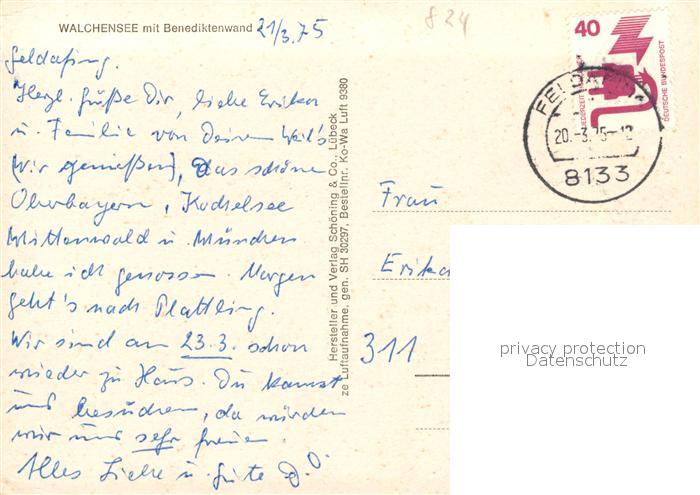 WALCHENSEE mit Benediktenwand 21/3.75
824
Feldafing.
Herzl. Grüße Dir, liebe Erika
u. Familie von Deinen
Wir genießen, das schöne
Oberbayern, Kochelsee
Mittenwald u. München
habe ich genossen. Morgen
geht's nach Plattling.
Wir sind am 23.3. schon
wieder zu Haus. Du kannst
uns besuchen, da würden
wir uns sehr freuen.
Alles Liebe u. Gute
Hersteller und Verlag Schöning & Co., Lübeck
ze Luftaufnahme, gen. SH 30297, Bestellnr. Ko-Wa Luft 9380
40
JEDERZEIT
DEUTSCHE BUNDESPOST
20.-3.75-18
8133
Frau
Erika
311
privacy protection
Datenschutz